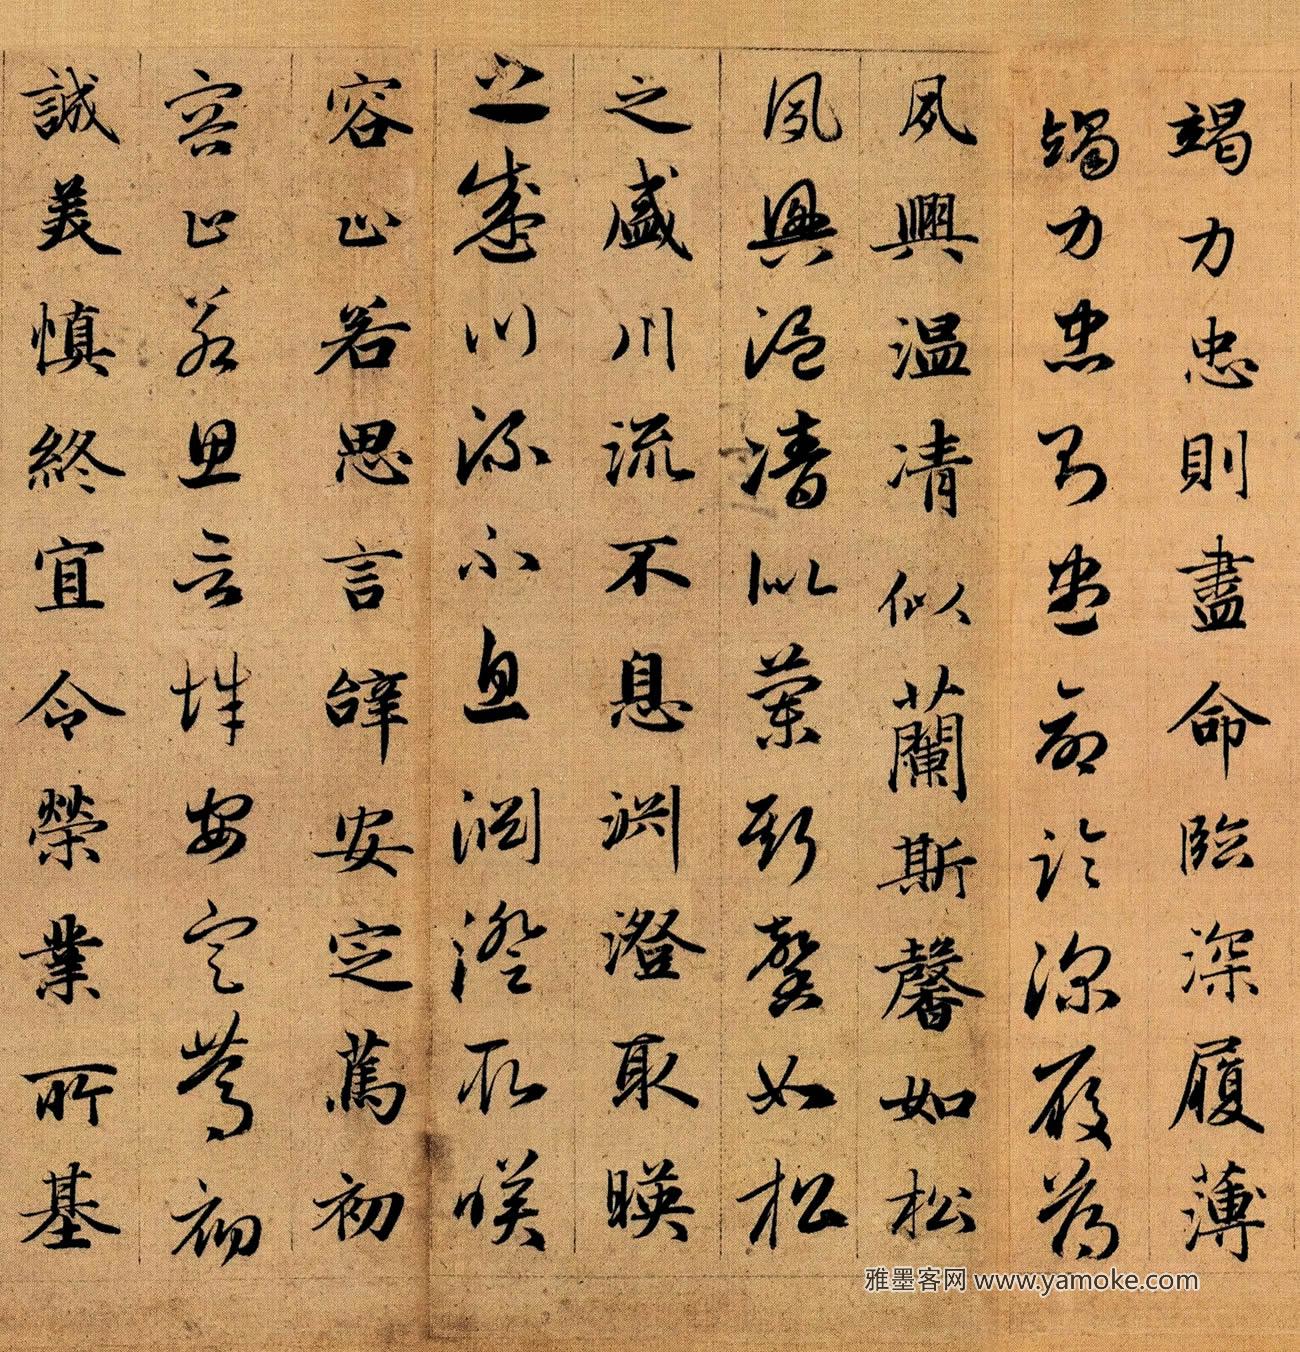 竭力忠則盡命臨深履薄
竭力忠則盡命臨深履薄
夙興温凊似蘭斯馨如松
夙興温凊似蘭斯馨如松
之盛川流不息淵澄取暎
之盛川流不息淵澄取暎
容止若思言辭安定篤初
容止若思言辭安定篤初
誠美慎終宜令榮業所基
雅墨客网 www.yamoke.com